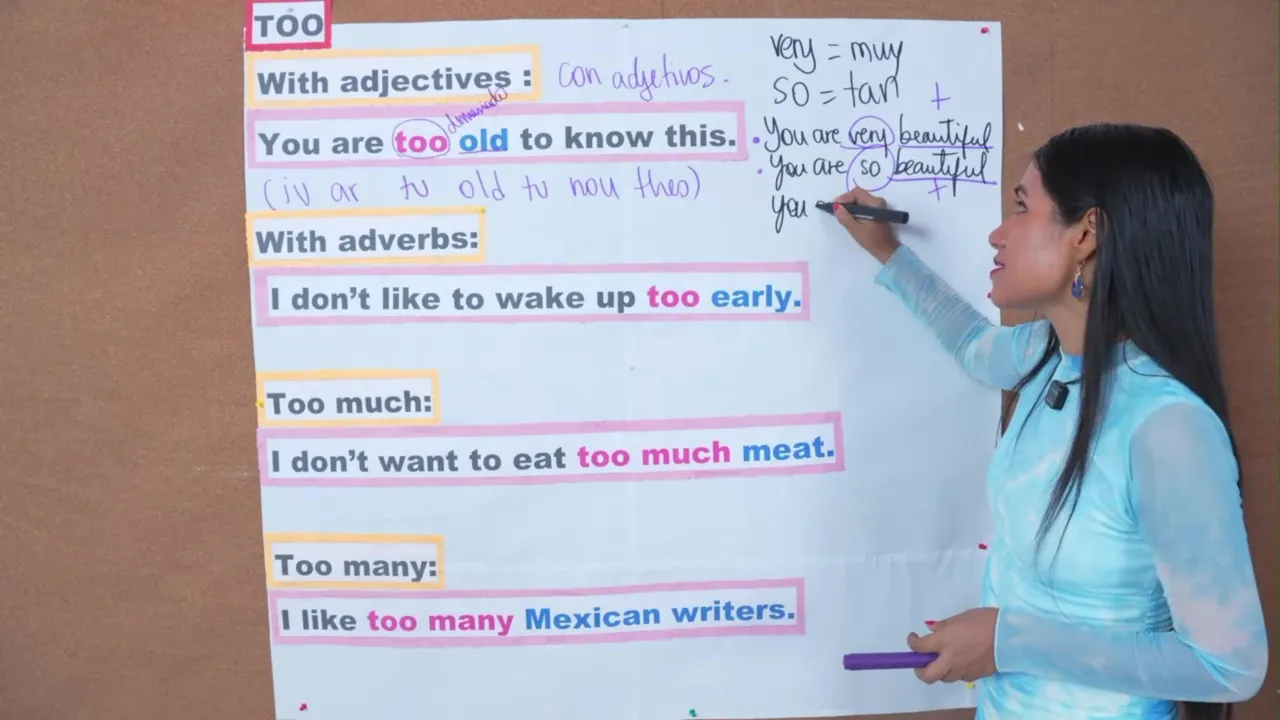 TOO
With adjectives :
con adjetivos.
demasiado
You are too old to know this.
(iu ar tu old tu nou theo)
With adverbs:
I don't like to wake up too early.
Too much:
I don't want to eat too much meat.
Too many:
I like too many Mexican writers.
very = muy
so = tan
+
• You are very beautiful
• You are so beautiful
+
you